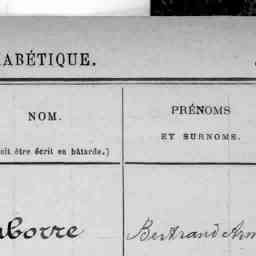 ABÉTIQUE.
NOM.
PRÉNOMS
ET SURNOMS.
oit être écrit en bâtarde.)
borre
Bertrand Arm